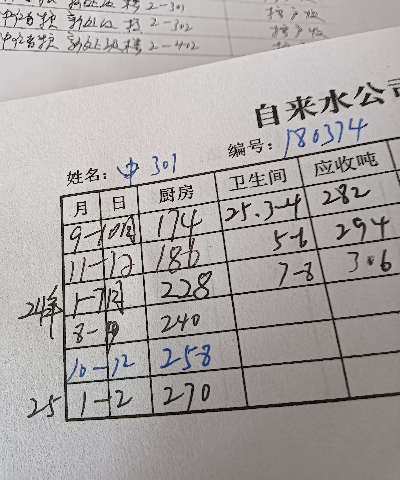 2-301
2-302
2-402
自来水公司
姓名：中 301 编号：180374
月 日 厨房 卫生间 应收吨
9-10月 174 25.3-4 282
11-12 186 5-6 294
24年 1-7月 228 7-8 306
8-9 240
10-12 258
25 1-2 270